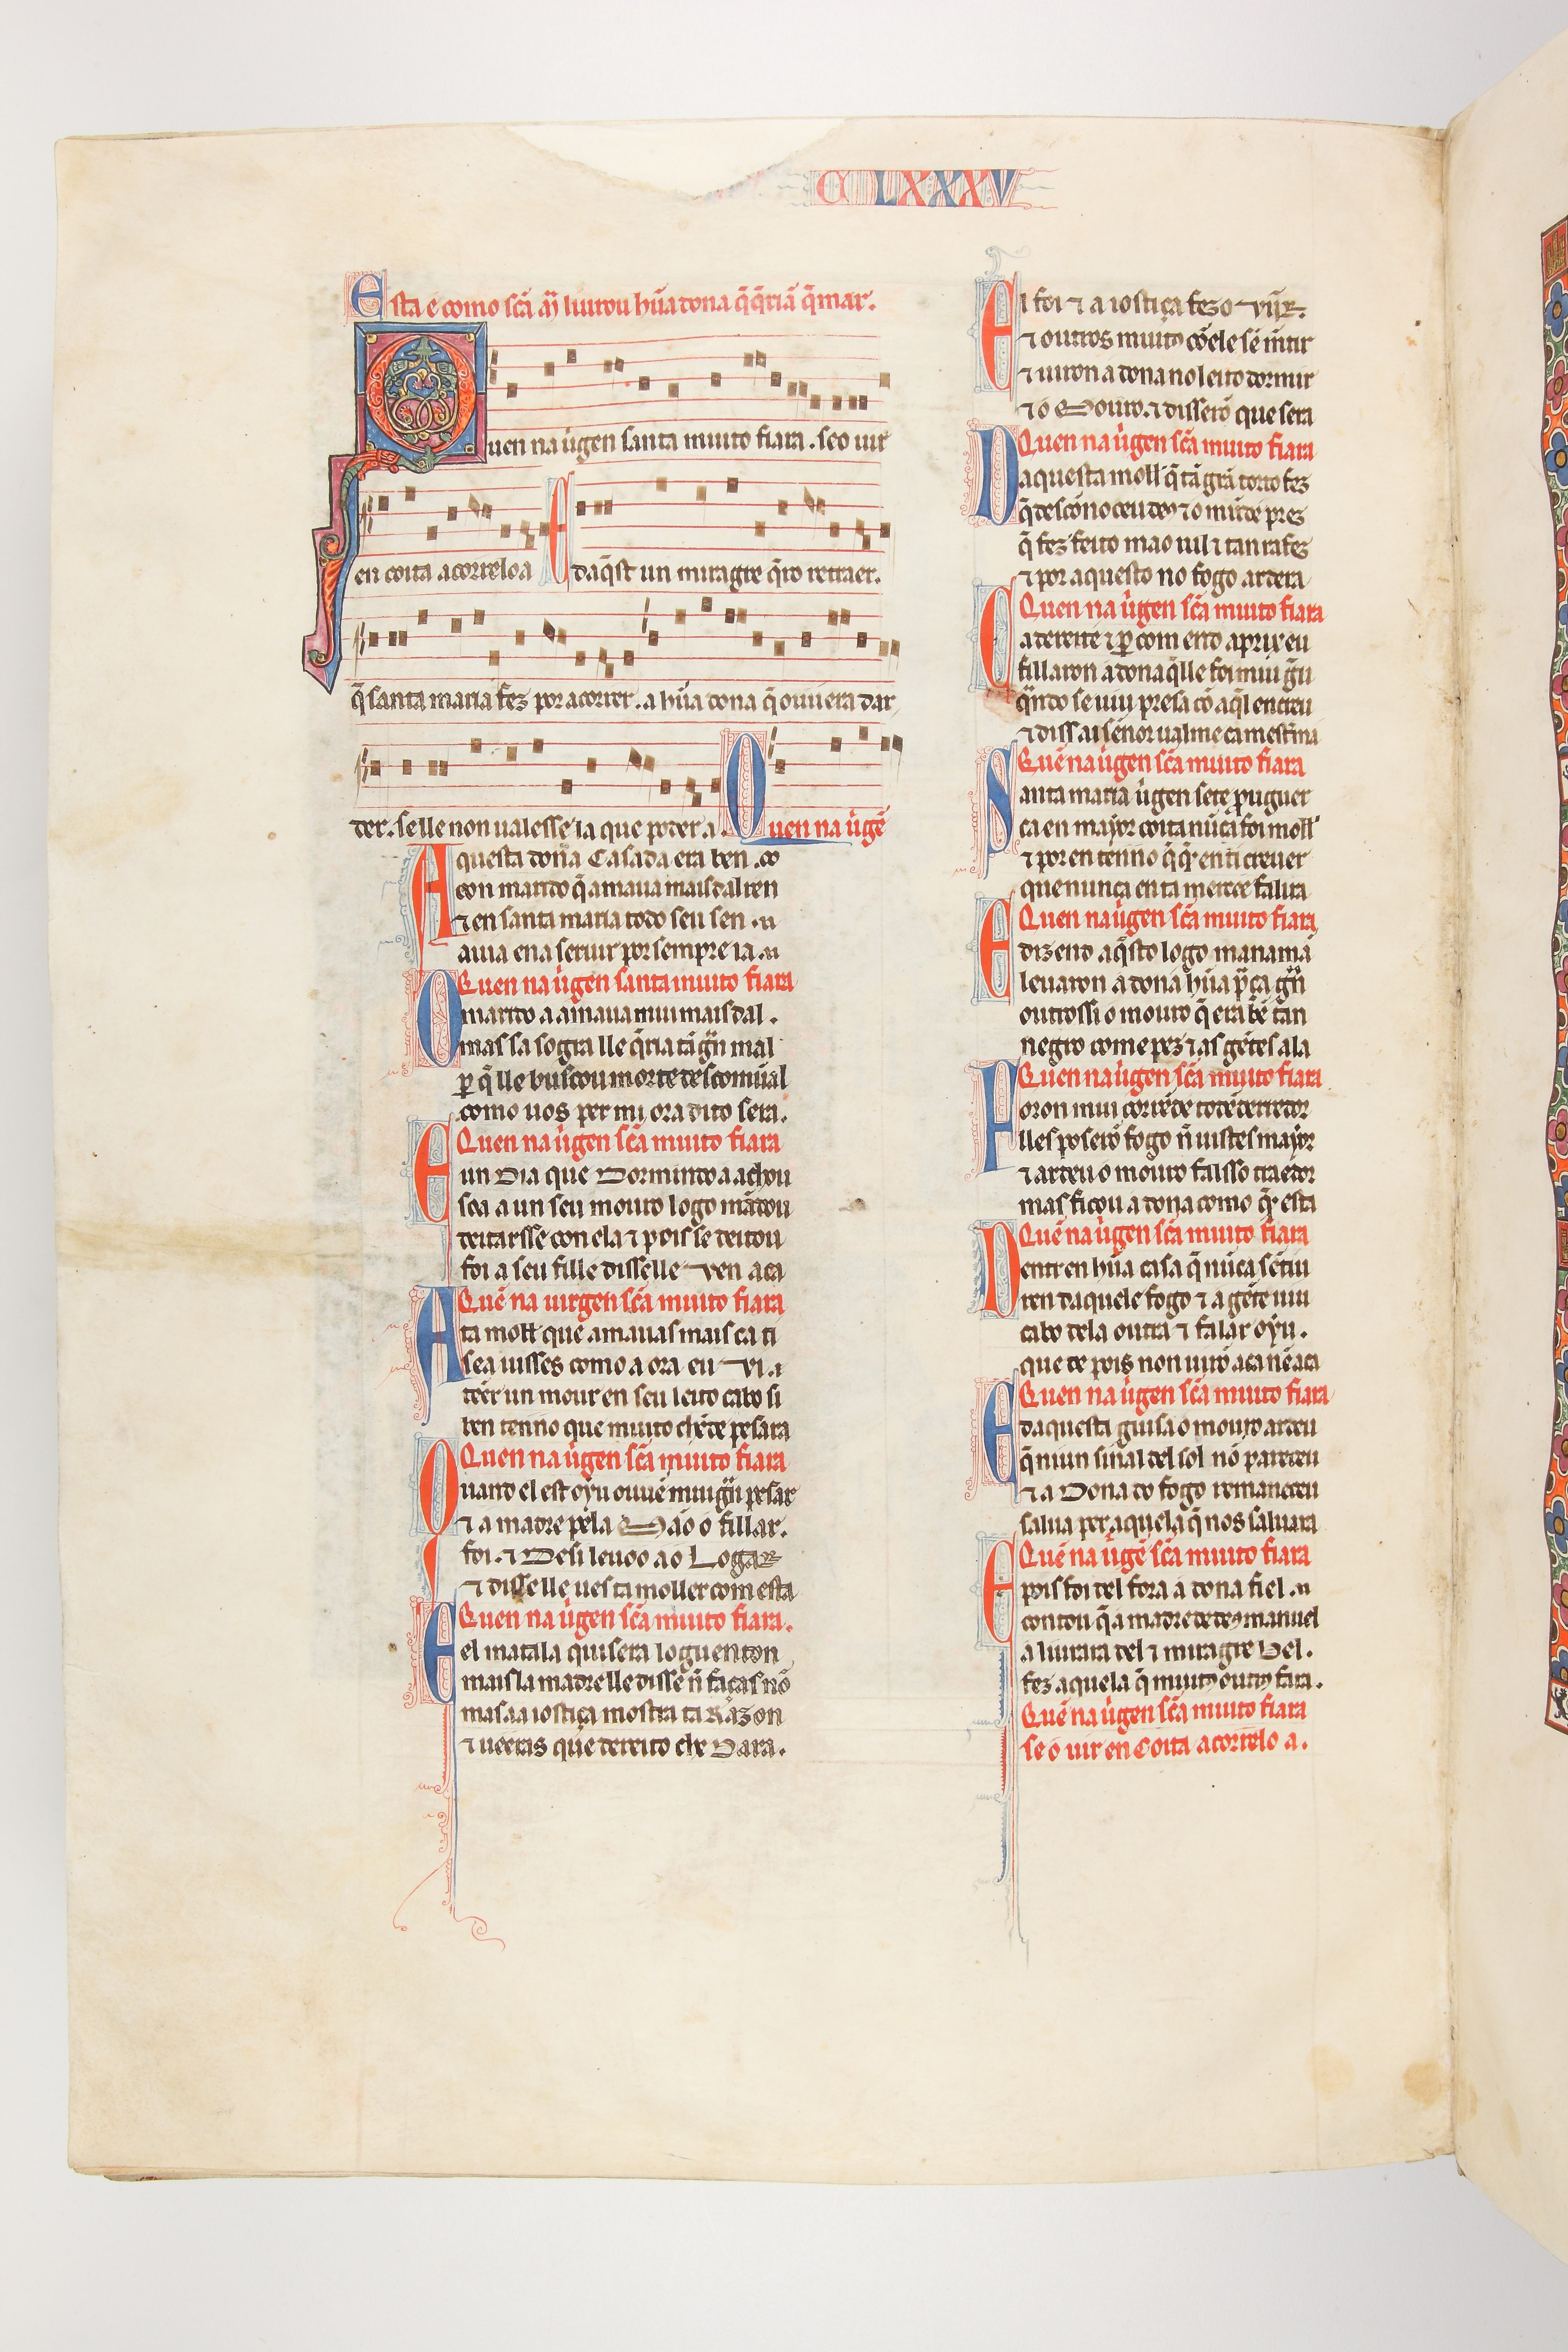 C LXXXV
Esta é como scã mã liurou hũa dona q̃ q̃riã q̃mar.
Quen na uirgen santa muito fiara. seo uir
en coita acorreloa E daq̃st un miragre q̃ro retraer.
q̃ santa maria fez por acorrer. a hũa dona q̃ ouuera dar
der. se lle non ualesse ia que poder a. Quen na uirgẽ
Aquesta dona Casada era ben.
con marido q̃ amaua mais dal ren
⁊ en santa maria todo seu sen.
auia ena seruir por sempre ia.
Quen na uirgen santa muito fiara
O marido a amaua mui mais dal.
mas sa sogra lle q̃ria tã grã mal
per q̃ lle buscou morte descomũal
como uos per mi ora dito sera.
Quen na uirgen scã muito fiara
E un Dia que Dormindo a achou
soa a un seu mouro logo mãdou
deitarsse con ela ⁊ pois se deitou
foi a seu fille disselle uen aca
Quẽ na uirgen scã muito fiara
Ata moll que amauas mais ca ti
se a uisses como a ora eu Vi.
teer un mour en seu leito cabo si
ben tenno que muito chẽde pesara
Quen na uirgen scã muito fiara
Quando el est oyu ouuẽ mui grã pesar
⁊ a madre pela Mão o fillar.
foi. ⁊ Desi leuoo ao Logar
⁊ disselle ues ta moller com esta
Quen na uirgen scã muito fiara.
E el matala quisera loguenton
mais la madre lle disse nõ faças nõ
mas aa iostiça mostra ta Razon
⁊ ueeras que dereito che Dara.
El foi ⁊ a iostiça fezo viĩr.
⁊ outros muitos cõele sẽ mẽtir
⁊ uiron a dona no leito dormir
⁊ o Mouro. ⁊ disserõ que sera
Quen na uirgen scã muito fiara
Daquesta moll q̃ tã grã torto fez
q̃ desconoceu deus ⁊ o mũd e prez
q̃ fez feito mao uil ⁊ tan rafez
⁊ por aquesto no fogo ardera
Quen na uirgen scã muito fiara
C a dereit e ⁊ per com end aprix eu
fillaron a dona q̃lle foi mui grẽu
quãdo se uiu presa cõ aq̃l encreu
⁊ diss ai sẽnor ualme ca mestĩna
Quẽ na uirgen scã muito fiara
Santa maria uirgen sete prouguer
ca en mayor coita nũca foi moll
⁊ por en tenno q̃ q̃n en ti creuer
que nunca en ta mercee falira
Quen na uirgen scã muito fiara
E dizend aq̃sto logo manamã
leuaron a dona hũa praça grã
outrossi o mouro q̃ era bẽ tan
negro come pez ⁊ as gẽtes ala
Quen na uirgen scã muito fiara
Foron mui corrẽde todẽ derredor
lles poserõ fogo nõ uistes mayor
⁊ ardeu o mouro falsso traedor
mas ficou a dona como q̃n esta
Quẽ na uirgen scã muito fiara
Dentr en hũa casa q̃ nũca sẽtiu
ren daquele fogo ⁊ a gẽte uiu
cabo dela outra ⁊ falar oyu.
que depois non uirõ aca nẽ aca
Quen na uirgen scã muito fiara
E daquesta guisa o mouro ardeu
q̃ niun sinal del sol nõ pareceu
⁊ a Dona do fogo remaneceu
salua per aquela q̃ nos saluara
Quẽ na uirgẽ scã muito fiara
E pois foi del fora a dona fiel.
contou q̃ a madre de deus manuel
a liurara del ⁊ miragre Bel.
fez aquela q̃ muitos outros fara.
Quẽ na uirgen scã muito fiara
se o uir en Coita acorrelo a.